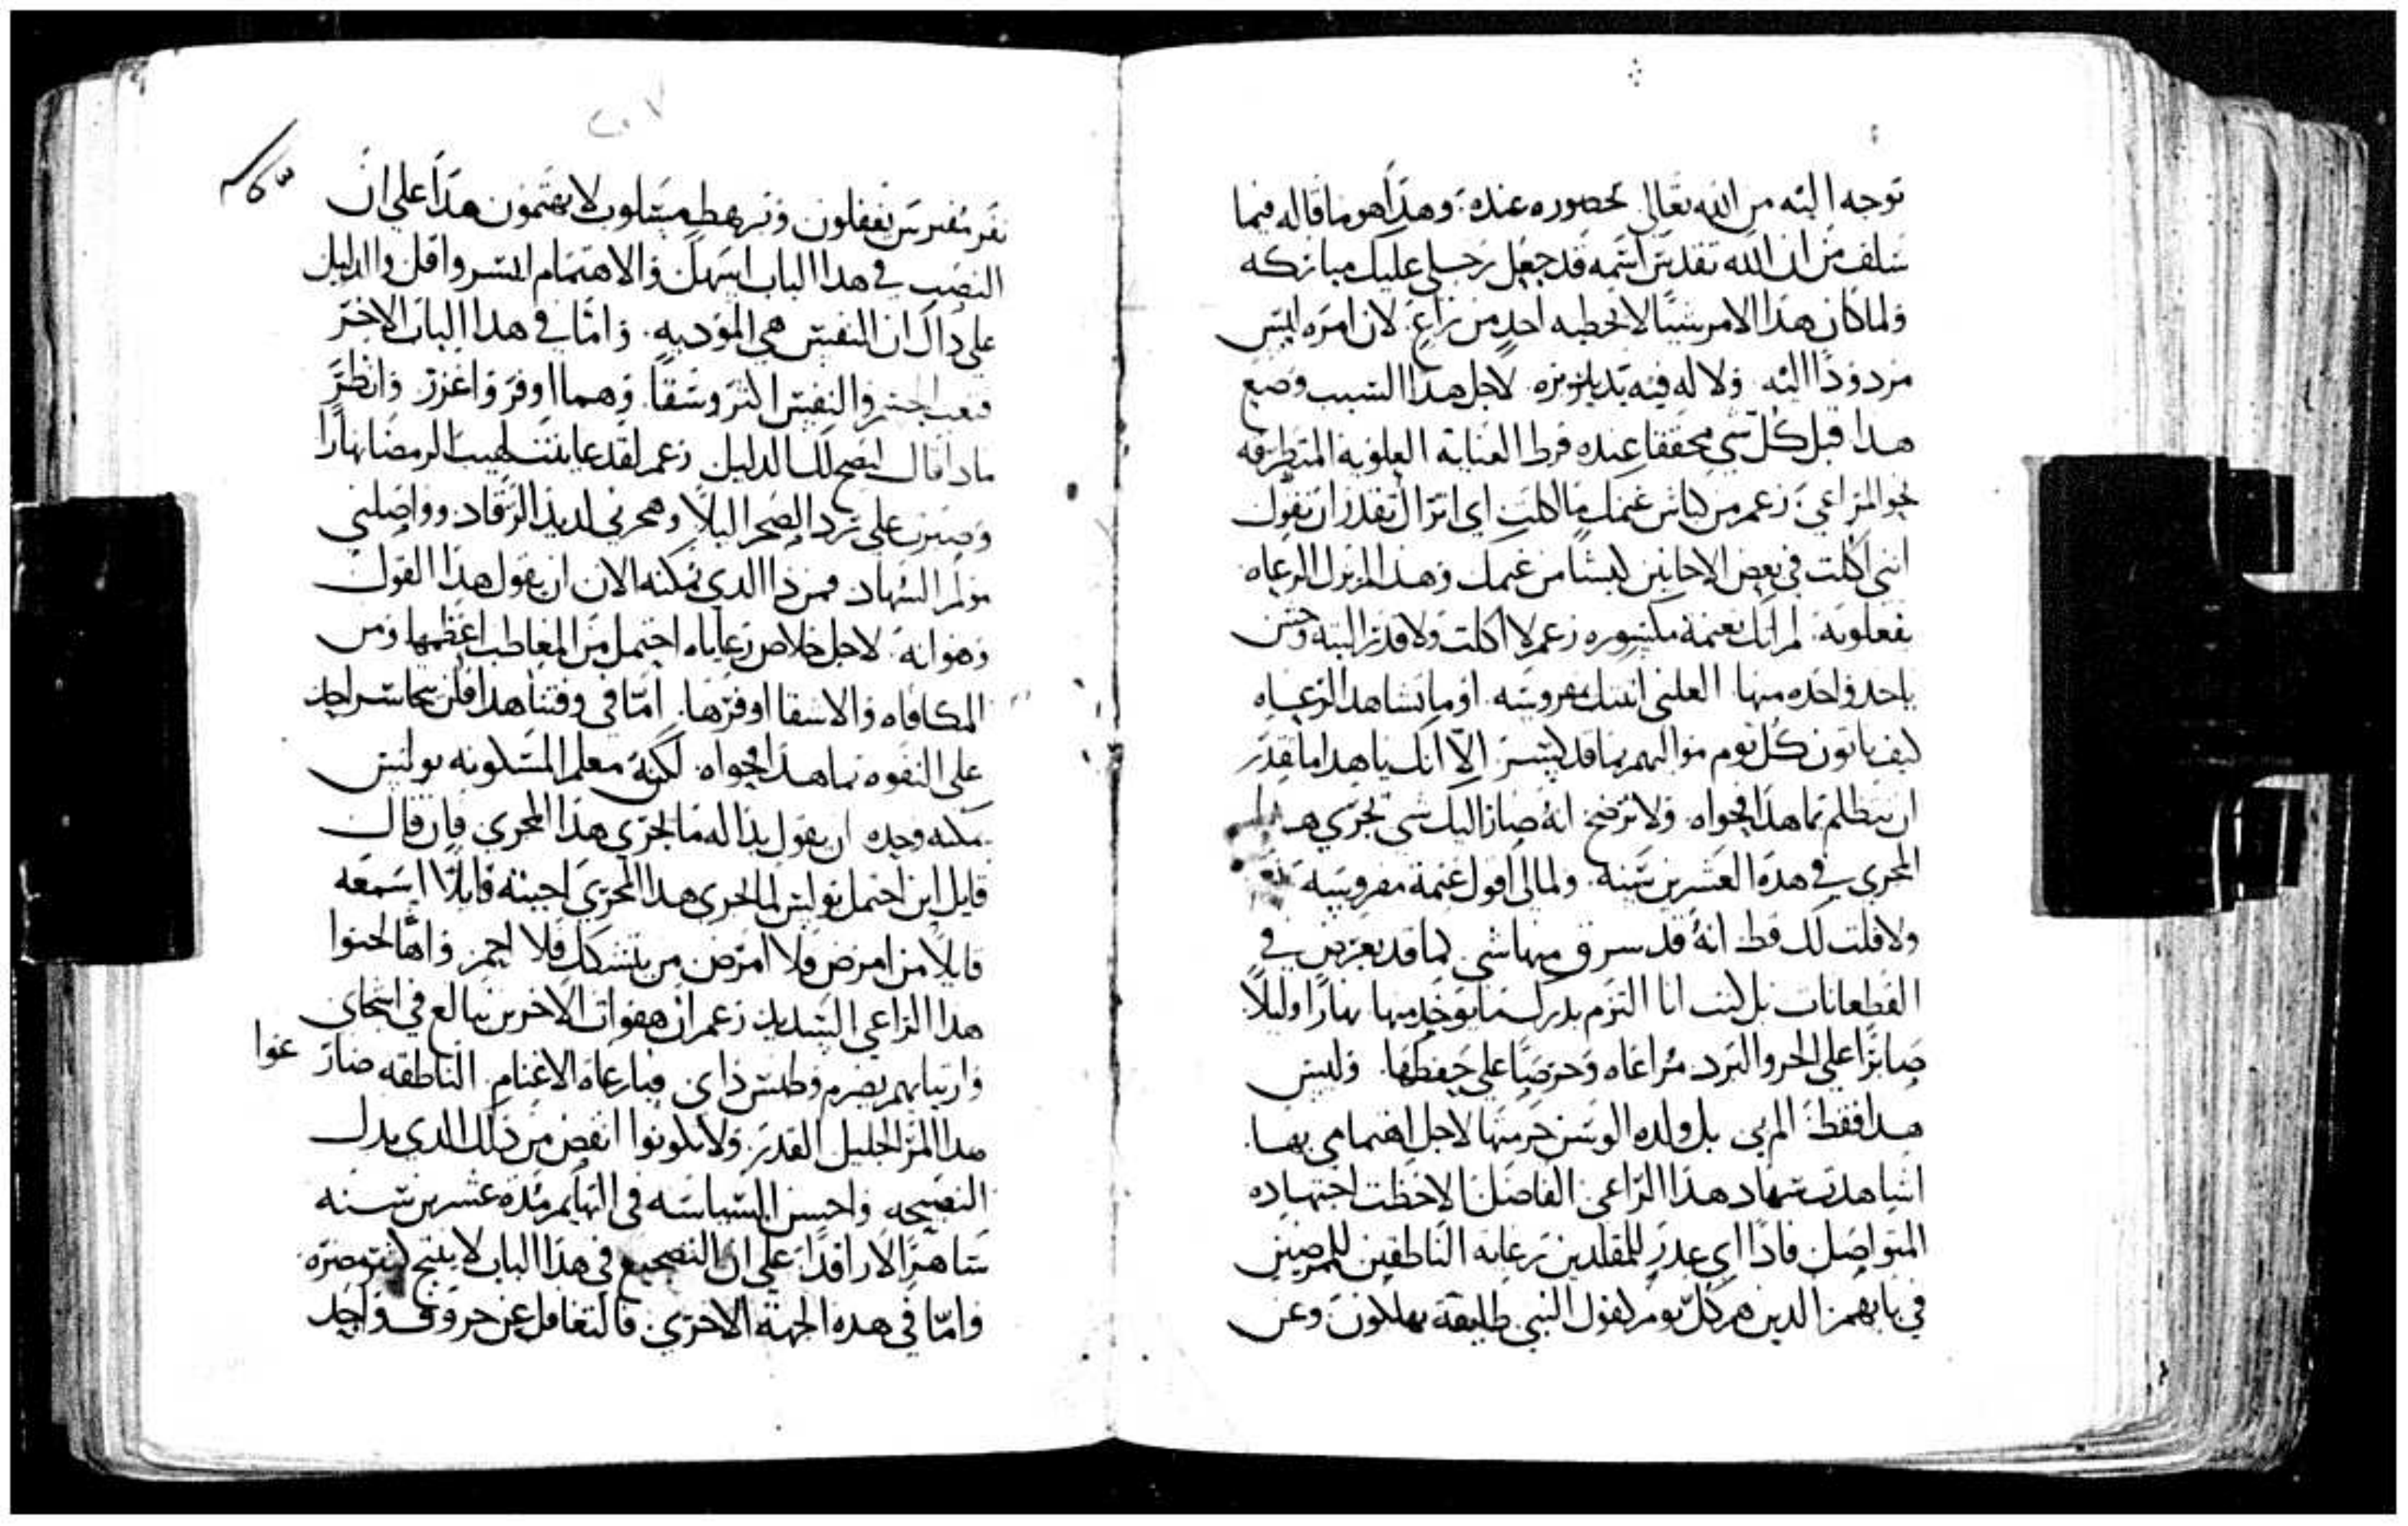 توجه اليه من الله تعالى بحضوره عنده. وهذا هو ما قاله فيما
سلف من ان الله تقدس اسمه قد جعل رجلي عليك مباركه
ولما كان هذا الامر شيًا لا يخطيه احد من زاغ. لان امره ليس
مردودًا اليه ولا له فيه تدبيره. لاجل هذا السبب وضع
هدا قبل كل شي محققا عنده فرط العنايه العلويه المتطرقه
نحو الراعي. زعم من كباش غنمك ما اكلت اي اترال تقدر ان تقول
انني اكلت في بعض الاحايين كبشًا من غنمك وهذا لم يزل الرعاه
يفعلونه. لم اتك بغنمة مكسوره زعم لا اكلت ولا قدمت اليته وحتى
ياحد واحده منها العلني اتيتك بفروسه. او ما تشاهد الرعاه
كيف ياتون كل يوم مواليهم بما قد كسر الا انك يا هدا ما تقدر
ان تتظلم بما هدا فحواه ولا توضح انه صار اليك شي يجري هدا
المجرى في هده العشرين سنه. ولما لي اقول غنمة مفروسه
ولا قلت لك قط انه قد سرق منها شي كما قد يعرض في
القطعانات بل كنت انا التزم بدرك ما يوخد منها نهارًا وليلًا
صابرًا على الحر والبرد مراعاه وحرصًا على حفظها. وليس
هدا فقط المربي بل ولده الوسن حرمتها لاجل اهتمامي بها.
اشاهدت سهاد هدا الراعي الفاضل الاحظت اجتهاده
المتواصل فادًا اي عدر للمقلدين رعايه الناطقين للمرضين
في بابهم الدين هم كل يوم كقول النبي طليقة يهلكون وعن
نفر مفترسن يغفلون وترهطه مسلوب لا يهتمون هدا على ان
النصب في هدا الباب اسهل والاهتمام ايسر واقل والدليل
على داك ان النفس هي الموديه. واما في هدا الباب الاخر
فتعب الجسم والنفس اكثر وشقًا. وهما اوفر واغزر وانظر
مادا قال ليضح لك الدليل زعم لقد عاينت لهيب الرمضا نهارًا
وصبرت على برد الصحرا ليلًا وهجرني لديد الرقاد وواصلني
مولم السهاد فمن دا الدي يمكنه الان ان يقول هدا القول
وهو انه لاجل خلاص رعاياه احتمل من المعاطب اعظمها ومن
المكافاه والاشقا اوفرها. اما في وقتنا هدا فلن يتجاسر احد
على التفوه بما هدا فحواه. لكنه معلم المسكونه بولس
يمكنه وحده ان يقول بداله ما يجري هدا المجرى فان قال
قايل اين احتمل بولس لما يجري هدا المجرى اجبته قايلًا اسمعه
قايلًا من امرض ولا امرض من يتشكك فلا احم. واها لحنوا
هدا الراعي الشديد زعم ان هفوات الاخرين تبالغ في اشجاني
وارتيابهم يضرم وطيس داي فيا رعاة الاغنام الناطقه صار عوا
هدا المر الجليل القدر. ولا تكونوا انقض من دلك الدي بدل
النصيحه واحسن السياسه في البهايم مده عشرين سنه
ساهرًا لا راقدًا على ان التضجيع في هدا الباب لا ينتج كثير مضره
واما في هده الجهة الاخرى فالتغافل عن خروف واحد